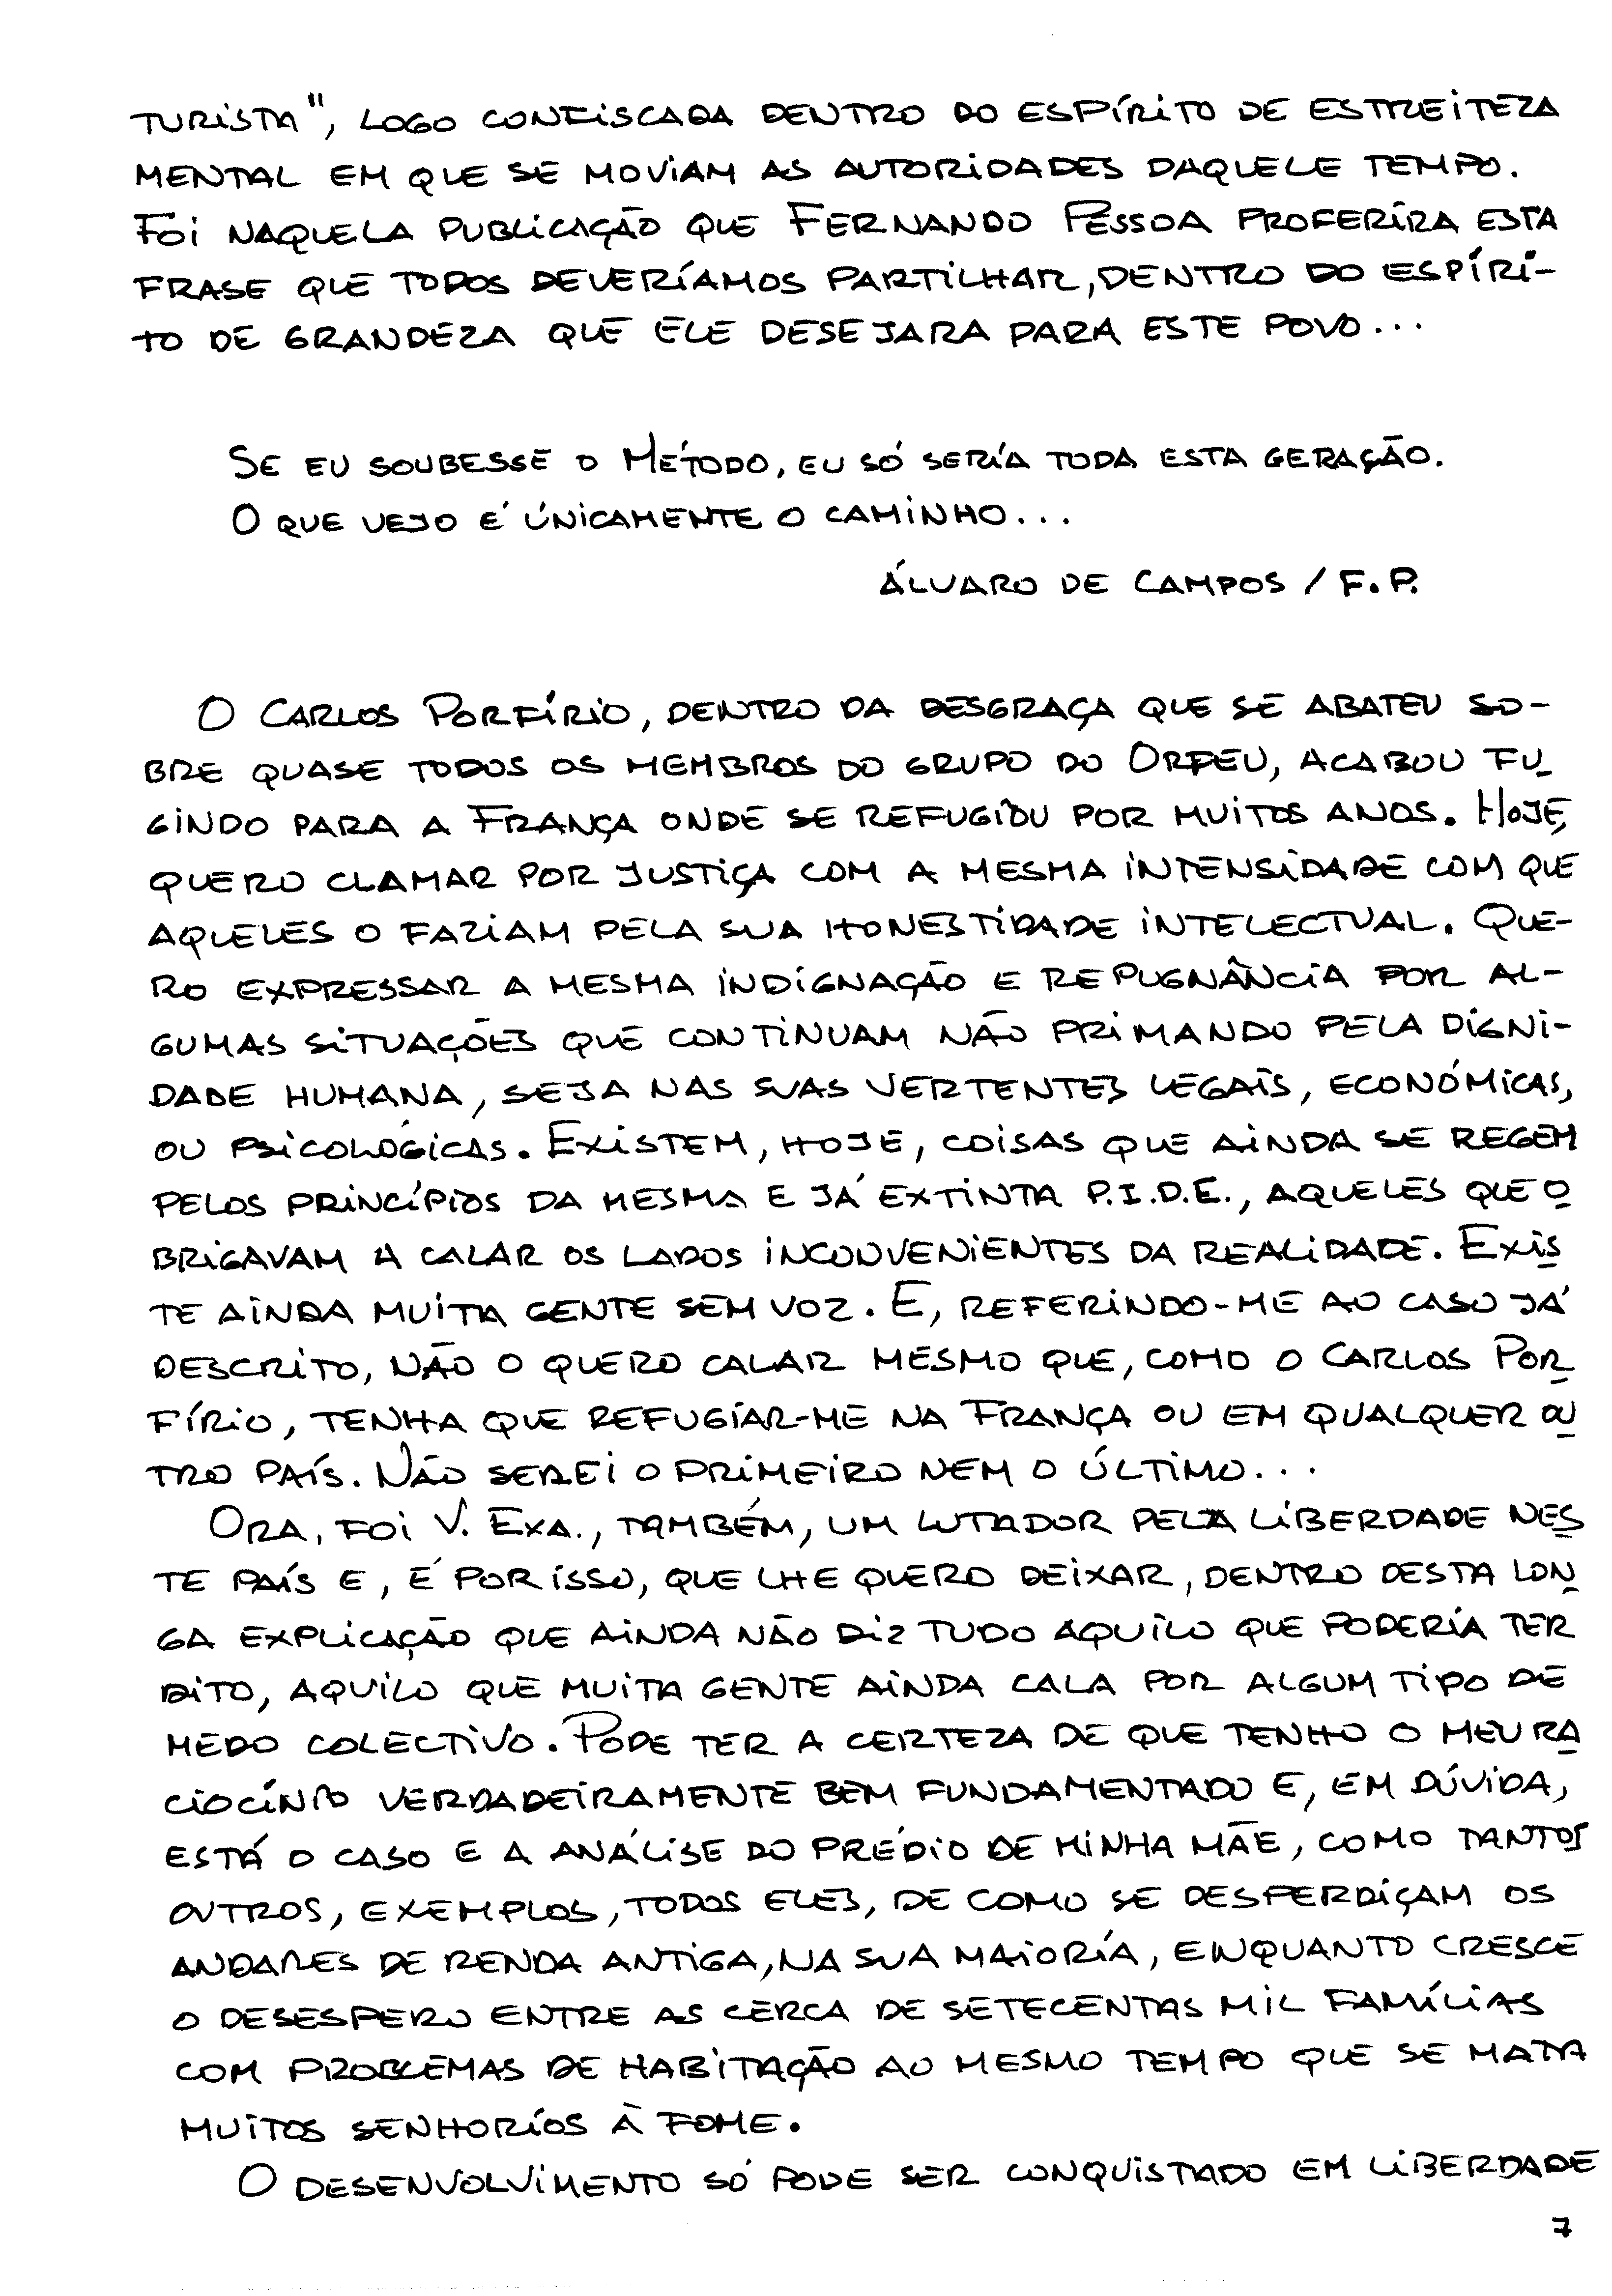 TURISTA", LOGO CONFISCADA DENTRO DO ESPÍRITO DE ESTREITEZA
MENTAL EM QUE SE MOVIAM AS AUTORIDADES DAQUELE TEMPO.
FOI NAQUELA PUBLICAÇÃO QUE FERNANDO PESSOA PROFERIRA ESTA
FRASE QUE TODOS DEVERÍAMOS PARTILHAR, DENTRO DO ESPÍRI-
TO DE GRANDEZA QUE ELE DESEJARA PARA ESTE POVO...
SE EU SOUBESSE O MÉTODO, EU SÓ SERÍA TODA ESTA GERAÇÃO.
O QUE VEJO É ÚNICAMENTE O CAMINHO...
ÁLVARO DE CAMPOS / F.P.
O CARLOS PORFÍRIO, DENTRO DA DESGRAÇA QUE SE ABATEU SO-
BRE QUASE TODOS OS MEMBROS DO GRUPO DO ORPEU, ACABOU FU_
GINDO PARA A FRANÇA ONDE SE REFUGIOU POR MUITOS ANOS. HOJE,
QUERO CLAMAR POR JUSTIÇA COM A MESMA INTENSIDADE COM QUE
AQUELES O FAZIAM PELA SUA HONESTIDADE INTELECTUAL. QUE-
RO EXPRESSAR A MESMA INDIGNAÇÃO E REPUGNÂNCIA POR AL-
GUMAS SITUAÇÕES QUE CONTINUAM NÃO PRIMANDO PELA DIGNI-
DADE HUMANA, SEJA NAS SUAS VERTENTES LEGAIS, ECONÓMICAS,
OU PSICOLÓGICAS. EXISTEM, HOJE, COISAS QUE AINDA SE REGEM
PELOS PRINCÍPIOS DA MESMA E JÁ EXTINTA P.I.D.E., AQUELES QUE O
BRIGAVAM A CALAR OS LADOS INCONVENIENTES DA REALIDADE. EXIS
TE AINDA MUITA GENTE SEM VOZ. E, REFERINDO-ME AO CASO JÁ
DESCRITO, NÃO O QUERO CALAR MESMO QUE, COMO O CARLOS POR
FÍRIO, TENHA QUE REFUGIAR-ME NA FRANÇA OU EM QUALQUER OU
TRO PAÍS. NÃO SEREI O PRIMEIRO NEM O ÚLTIMO...
ORA, FOI V. EXA., TAMBÉM, UM LUTADOR PELA LIBERDADE NES
TE PAÍS E, É POR ISSO, QUE LHE QUERO DEIXAR, DENTRO DESTA LON
GA EXPLICAÇÃO QUE AINDA NÃO DIZ TUDO AQUILO QUE PODERÍA TER
DITO, AQUILO QUE MUITA GENTE AINDA CALA POR ALGUM TIPO DE
MEDO COLECTIVO. PODE TER A CERTEZA DE QUE TENHO O MEU RA
CIOCÍNIO VERDADEIRAMENTE BEM FUNDAMENTADO E, EM DÚVIDA,
ESTÁ O CASO E A ANÁLISE DO PRÉDIO DE MINHA MÃE, COMO TANTOS
OUTROS, EXEMPLOS, TODOS ELES, DE COMO SE DESPERDIÇAM OS
ANDARES DE RENDA ANTIGA, NA SUA MAIORÍA, ENQUANTO CRESCE
O DESESPERO ENTRE AS CERCA DE SETECENTAS MIL FAMÍLIAS
COM PROBLEMAS DE HABITAÇÃO AO MESMO TEMPO QUE SE MATA
MUITOS SENHORÍOS À FOME.
O DESENVOLVIMENTO SÓ PODE SER CONQUISTADO EM LIBERDADE
7